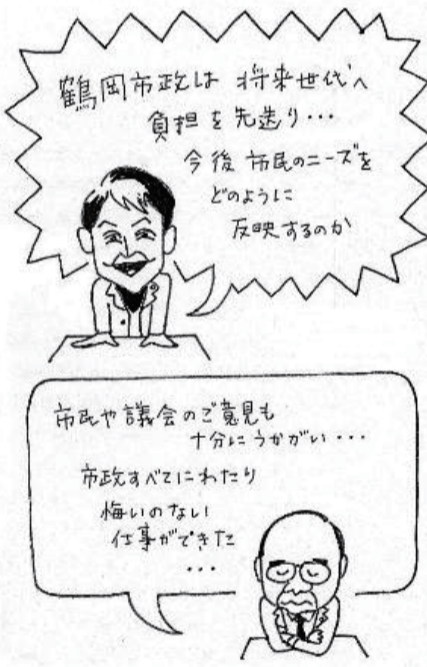 鶴岡市政は 将来世代へ
負担を先送り・・・
今後 市民のニーズを
どのように
反映するのか
市民や議会のご意見も
十分にうかがい・・・
市政すべてにわたり
悔いのない
仕事ができた
・・・